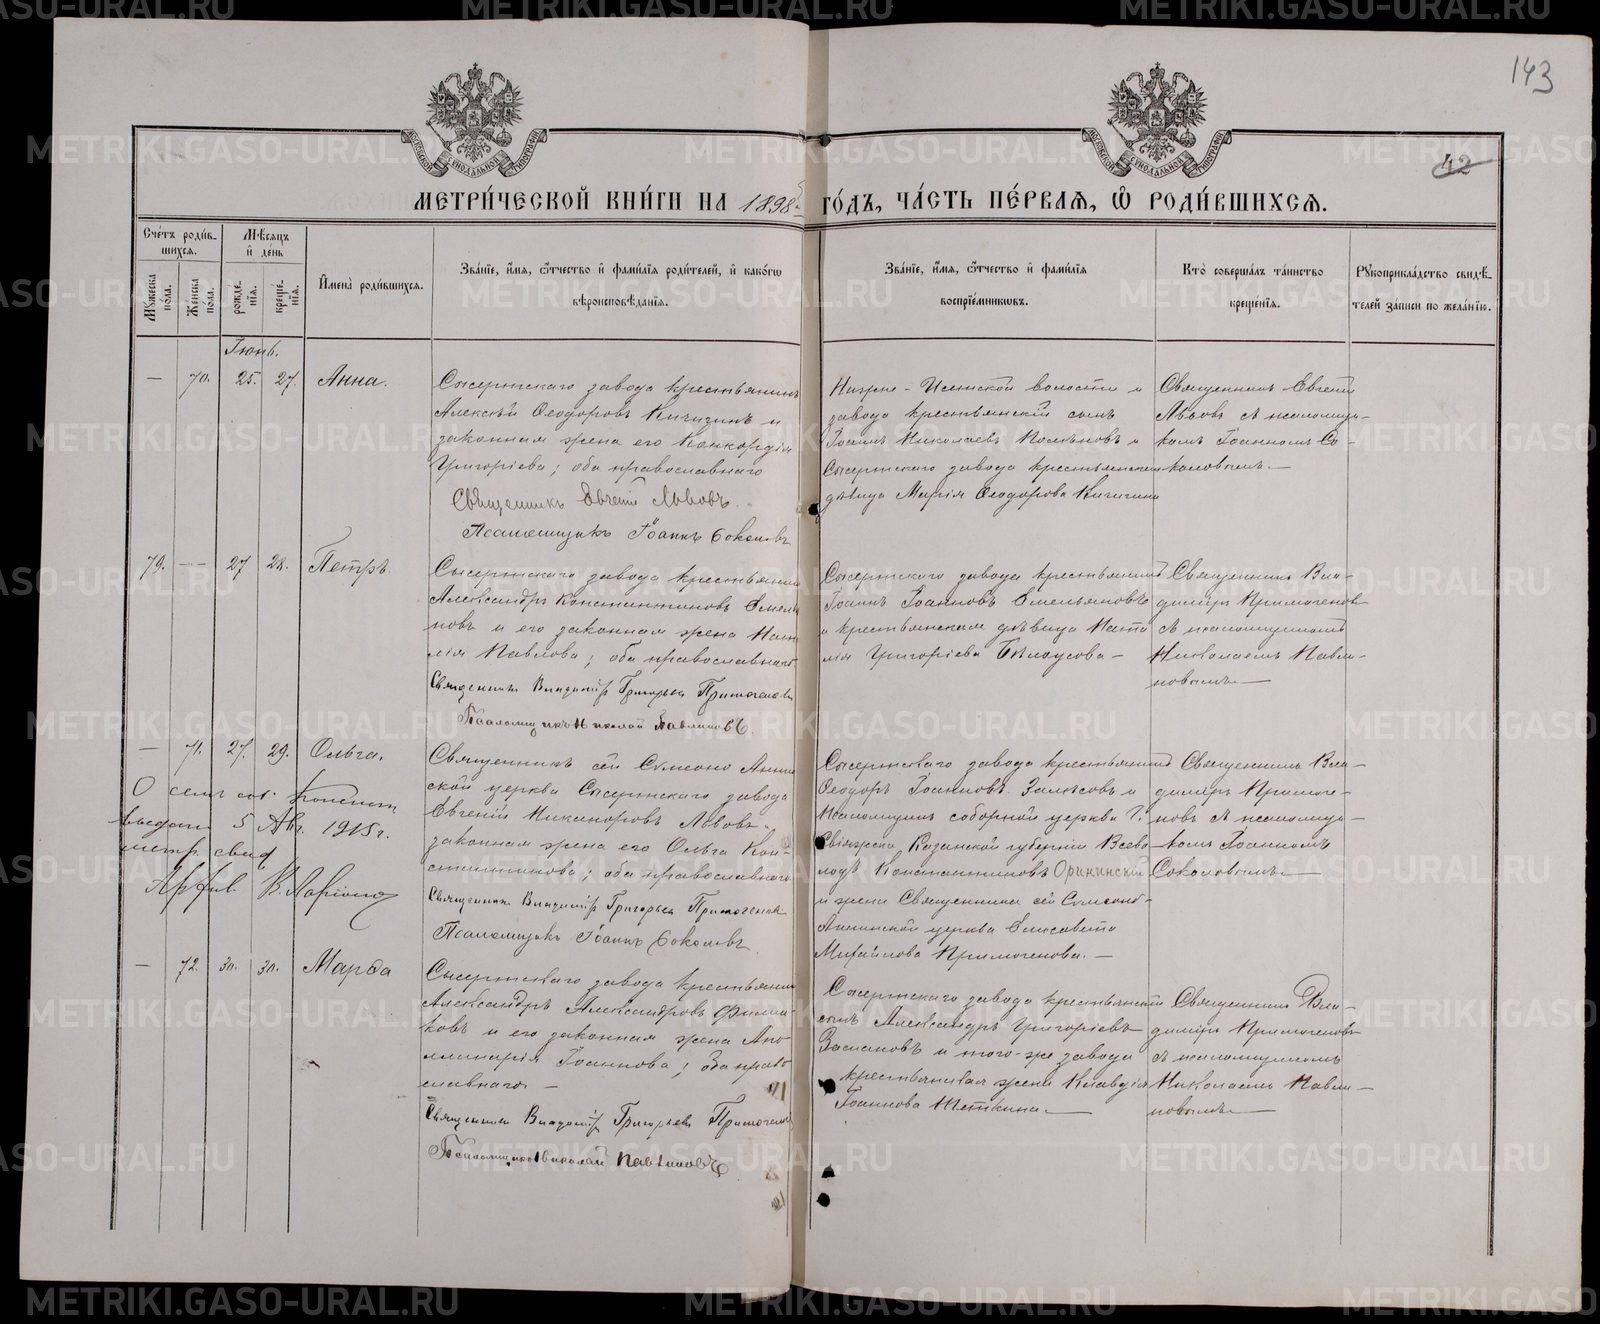 143
42
МЕТРИ́ЧЕСКОЙ КНИ́ГИ НА 1898 ГО́ДЪ, ЧА́СТЬ ПЕ́РВАЯ, Ѿ РОДИ́ВШИХСЯ.
Сче́тъ роди́в-
шихся.
Мѣсяцъ
и де́нь
Му́жеска по́ла.
Же́нска по́ла.
рожде́нїя.
креще́нїя.
Имена̀ роди́вшихся.
Зва́нїе, и́мя, ѻ́тчество и фами́лїя роди́телей, и како́гѡ
вѣроисповѣ́данїя.
Зва́нїе, и́мя, ѻ́тчество и фами́лїя
воспрїе́мниковъ.
Кто̀ соверша́лъ та́инство
креще́нїя.
Рꙋкоприкла́дство свидѣ́-
телей за́писи по жела́нїю.
Іюнь.
— 70. 25. 27. Анна.
Сысертскаго завода крестьянинъ
Алексѣй Ѳеодоровъ Кичигинъ и
законная жена его Конкордія
Григоріева; оба православнаго
Священникъ Евгеній Львовъ.
Псаломщикъ Іоаннъ Соколовъ
Нижне-Исетской волости и
завода крестьянскій сынъ
Іоаннъ Николаевъ и
Сысертскаго завода крестьянская
дѣвица Марія Ѳеодорова Кичигина
Священникъ Евгеній
Львовъ съ псаломщи-
комъ Іоанномъ Со-
коловымъ.—
79. — 27 28. Петръ.
Сысертскаго завода крестьянинъ
Александръ Константиновъ Емелья
новъ и его законная жена Ната
лія Павлова; оба православнаго
Священникъ Владиміръ Григорьевъ Примогеновъ
Псаломщикъ Николай Павлиновъ.
Сысертскаго завода крестьянинъ
Іоаннъ Іоанновъ Емельяновъ
и крестьянская дѣвица Ната
лія Григоріева Бѣлоусова —
Священникъ Вла-
диміръ Примогеновъ
съ псаломщикомъ
Николаемъ Павли-
новымъ—
— 71. 27. 29. Ольга.
О семъ
выдано 5 Авг. 1915 г.
метр. свид
Священникъ сей Симеоно Аннин
ской церкви Сысертскаго завода
Евгеній Никаноровъ Львовъ,
законная жена его Ольга Кон-
стантинова; оба православнаго
Священникъ Владиміръ Григорьевъ Примогеновъ
Псаломщикъ Іоаннъ Соколовъ.
Сысертскаго завода крестьянинъ
Ѳеодоръ Іоанновъ Залѣсовъ и
псаломщикъ соборной церкви г.
Свіяжска Казанской губерніи Всево
лодъ Константиновъ Орининскій
и жена Священника сей Симеоно-
Аннинской церкви Елисавета
Михайлова Примогенова.—
Священникъ Вла-
диміръ Примоге-
новъ съ псаломщи-
комъ Іоанномъ
Соколовымъ—
— 72. 30. 30. Марѳа
Сысертскаго завода крестьянинъ
Александръ Александровъ
ковъ и его законная жена Апо-
линарія Іоаннова; оба право
славнаго.—
Священникъ Владиміръ Григорьевъ Примогеновъ
Псаломщикъ Николай Павлиновъ
Сысертскаго завода крестьянскій
сынъ Александръ Григоріевъ
и того-же завода
крестьянская жена Клавдія
Іоаннова Шеткина.—
Священникъ Вла-
диміръ Примогеновъ
съ псаломщикомъ
Николаемъ Павли-
новымъ—
METRIKI.GASO-URAL.RU